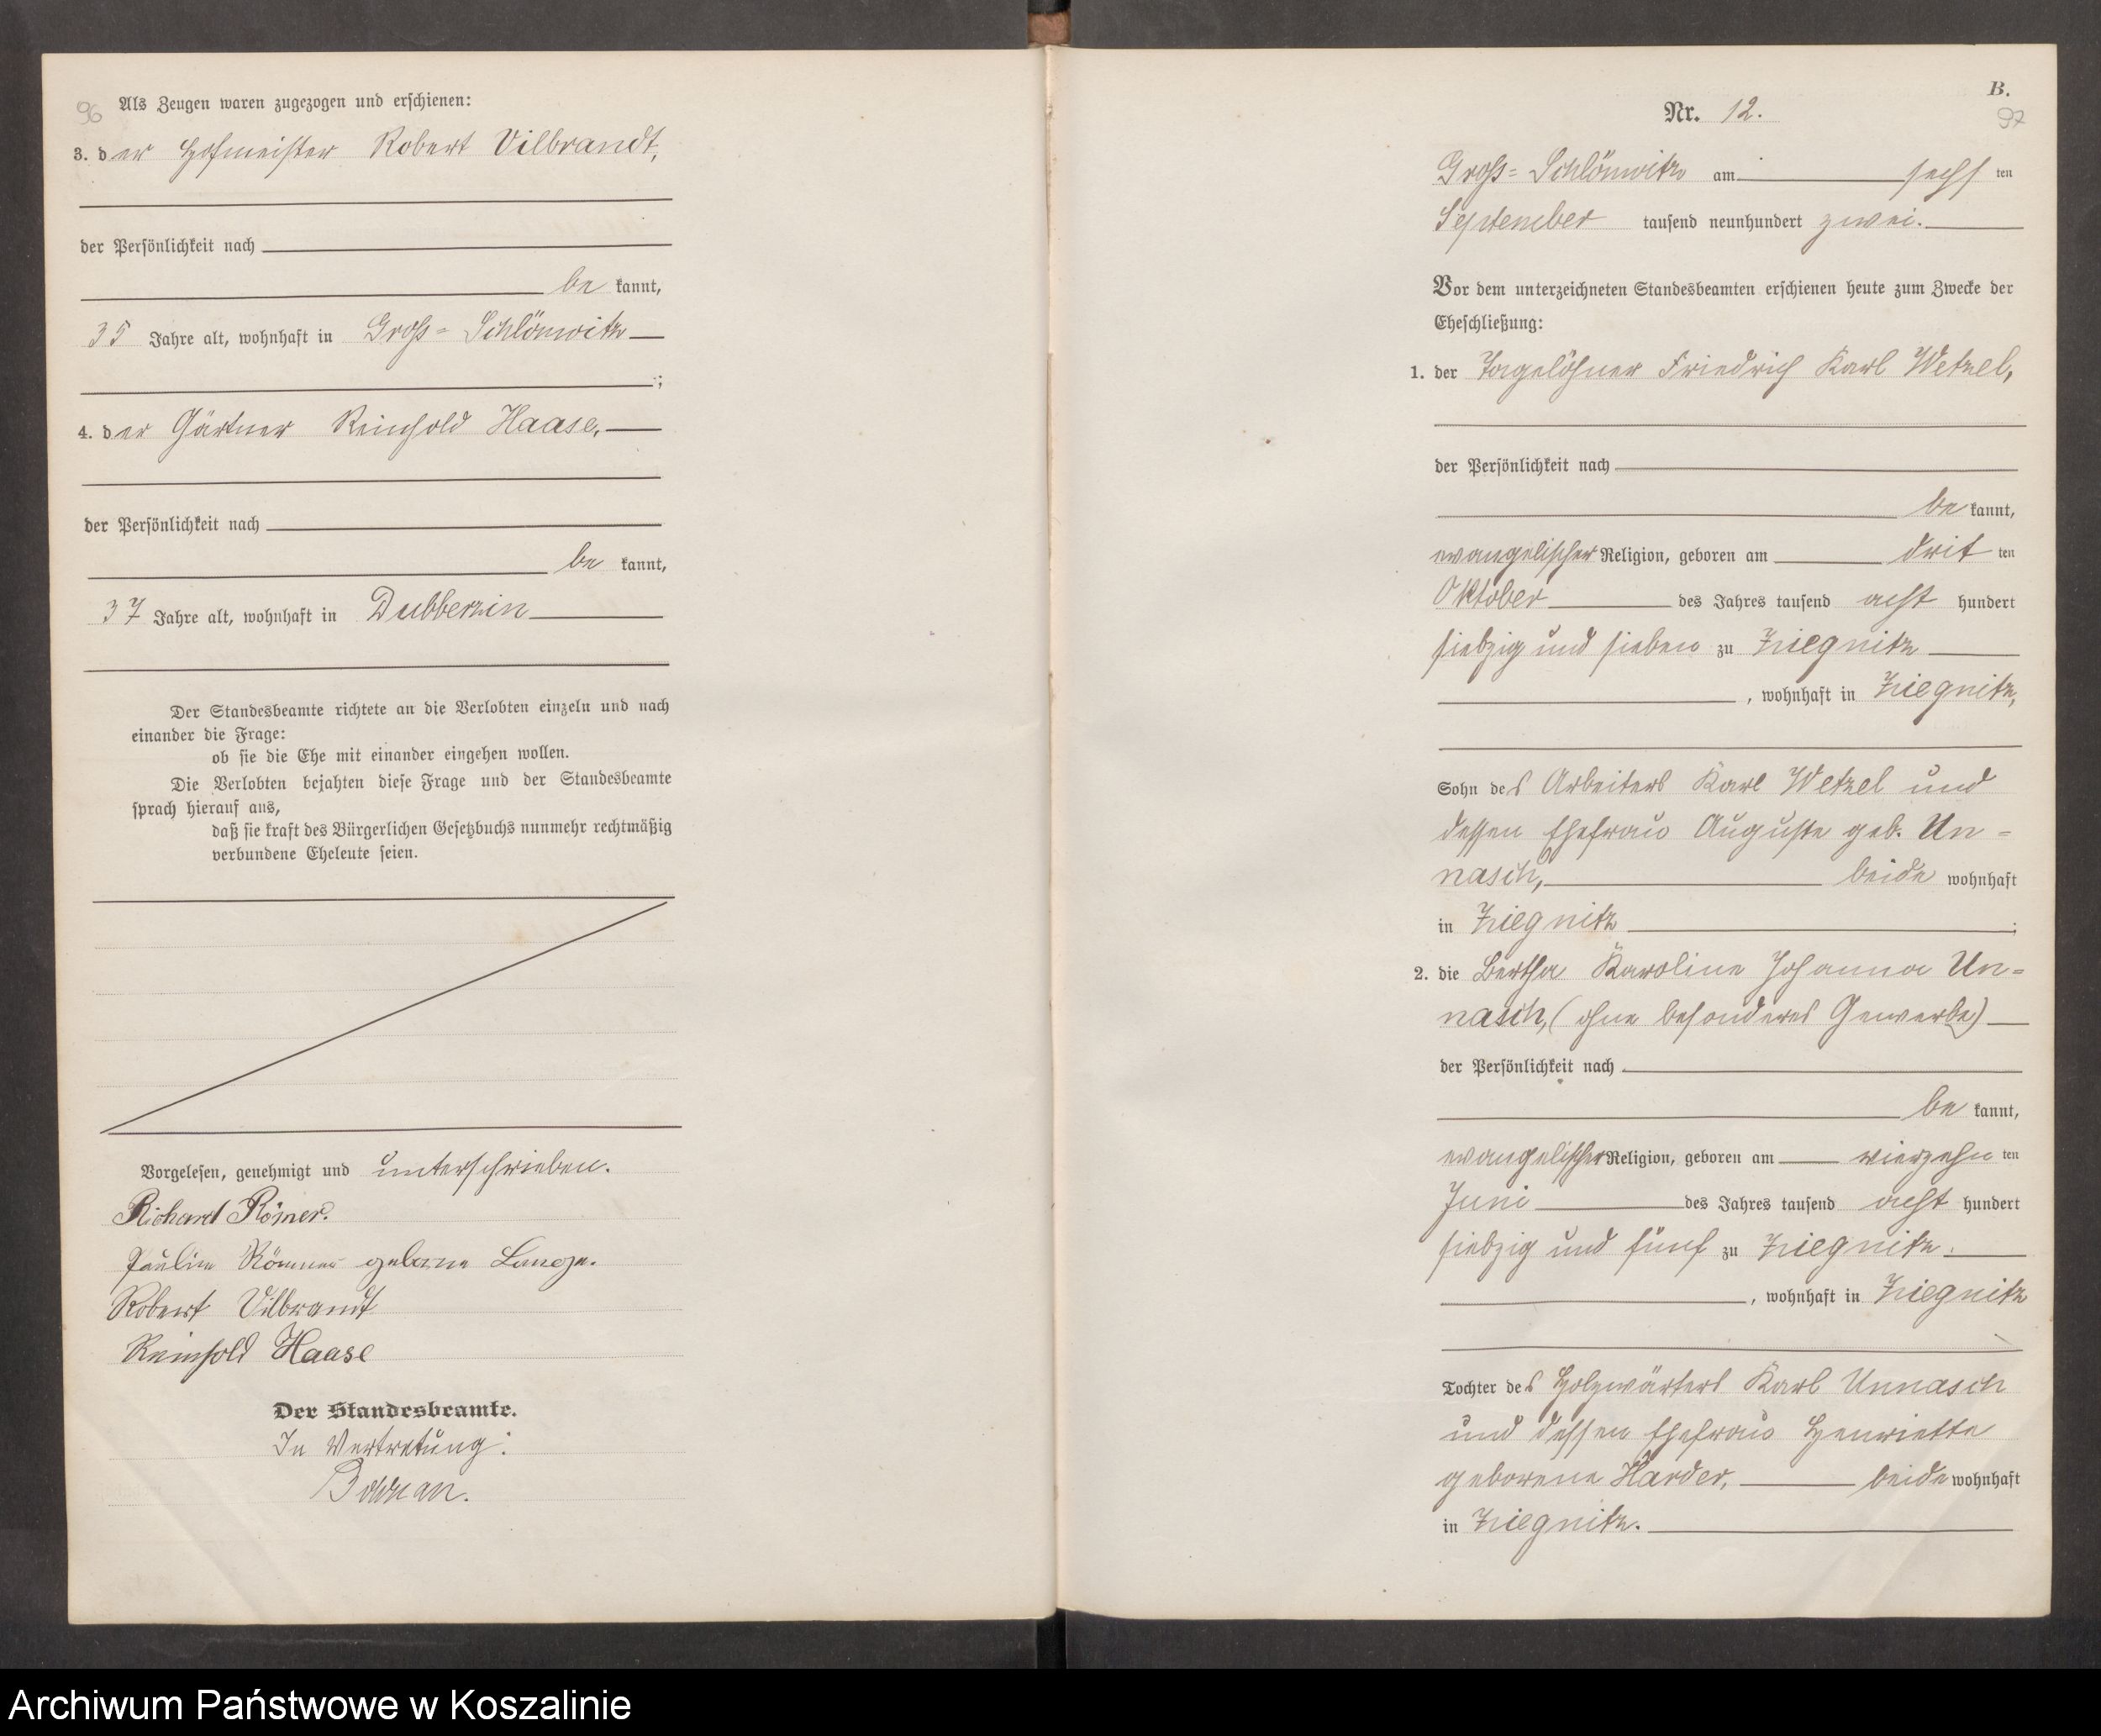 96
Als Zeugen waren zugezogen und erschienen:
3. der Hofmeister Robert Vilbrandt,
der Persönlichkeit nach
be kannt,
35 Jahre alt, wohnhaft in Groß=Schlönwitz
;
4. der Gärtner Reinhold Haase,
der Persönlichkeit nach
be kannt,
37 Jahre alt, wohnhaft in Dubberzin
Der Standesbeamte richtete an die Verlobten einzeln und nach
einander die Frage:
ob sie die Ehe mit einander eingehen wollen.
Die Verlobten bejahten diese Frage und der Standesbeamte
sprach hierauf aus,
daß sie kraft des Bürgerlichen Gesetzbuchs nunmehr rechtmäßig
verbundene Eheleute seien.
Vorgelesen, genehmigt und unterschrieben.
Richard Römer.
Paulin Römer geborne Lange.
Robert Vilbrandt
Reinhold Haase
Der Standesbeamte.
In Vertretung:
B.
Nr. 12.
97
Groß=Schlönwitz am sechs ten
September tausend neunhundert zwei.
Vor dem unterzeichneten Standesbeamten erschienen heute zum Zwecke der
Eheschließung:
1. der Tagelöhner Friedrich Karl Wetzel,
der Persönlichkeit nach
be kannt,
evangelischer Religion, geboren am drit ten
Oktober des Jahres tausend acht hundert
siebzig und sieben zu Ziegnitz
, wohnhaft in Ziegnitz,
Sohn des Arbeiters Karl Wetzel und
dessen Ehefrau Auguste geb. Un=
nasch, beide wohnhaft
in Ziegnitz ;
2. die Bertha Karoline Johanna Un=
nasch, (ohne besonderes Gewerbe)
der Persönlichkeit nach
be kannt,
evangelischer Religion, geboren am vierzehn ten
Juni des Jahres tausend acht hundert
siebzig und fünf zu Ziegnitz.
, wohnhaft in Ziegnitz
Tochter des Holzwärters Karl Unnasch
und dessen Ehefrau Henriette
geborene Harder, beide wohnhaft
in Ziegnitz.
Archiwum Państwowe w Koszalinie